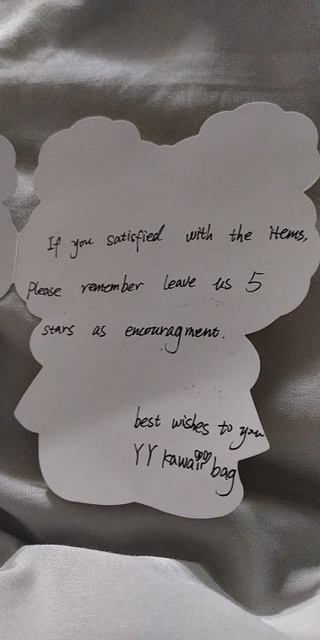 If you satisfied with the items,
Please remember leave us 5
stars as encouragment.
best wishes to you
YY kawaii bag